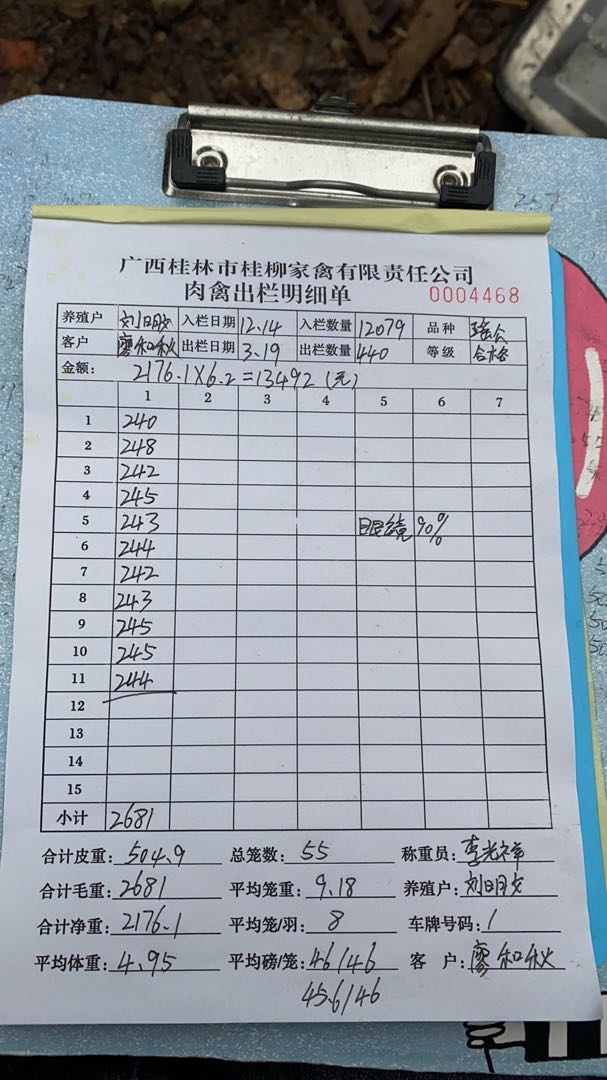 广西桂林市桂柳家禽有限责任公司
肉禽出栏明细单 0004468
养殖户 刘明文 入栏日期 12.14 入栏数量 12079 品种 瑶公
客户 廖和秋 出栏日期 3.19 出栏数量 440 等级 合格
金额: 2176.1×6.2=13492(元)
1 2 3 4 5 6 7
1 240
2 248
3 242
4 245
5 243 眼镜 90%
6 244
7 242
8 243
9 245
10 245
11 244
12
13
14
15
小计 2681
合计皮重: 504.9 总笼数: 55 称重员: 李光祥
合计毛重: 2681 平均笼重: 9.18 养殖户: 刘明文
合计净重: 2176.1 平均笼/羽: 8 车牌号码: 1
平均体重: 4.95 平均磅/笼: 46/46 客户: 廖和秋
45.6/46